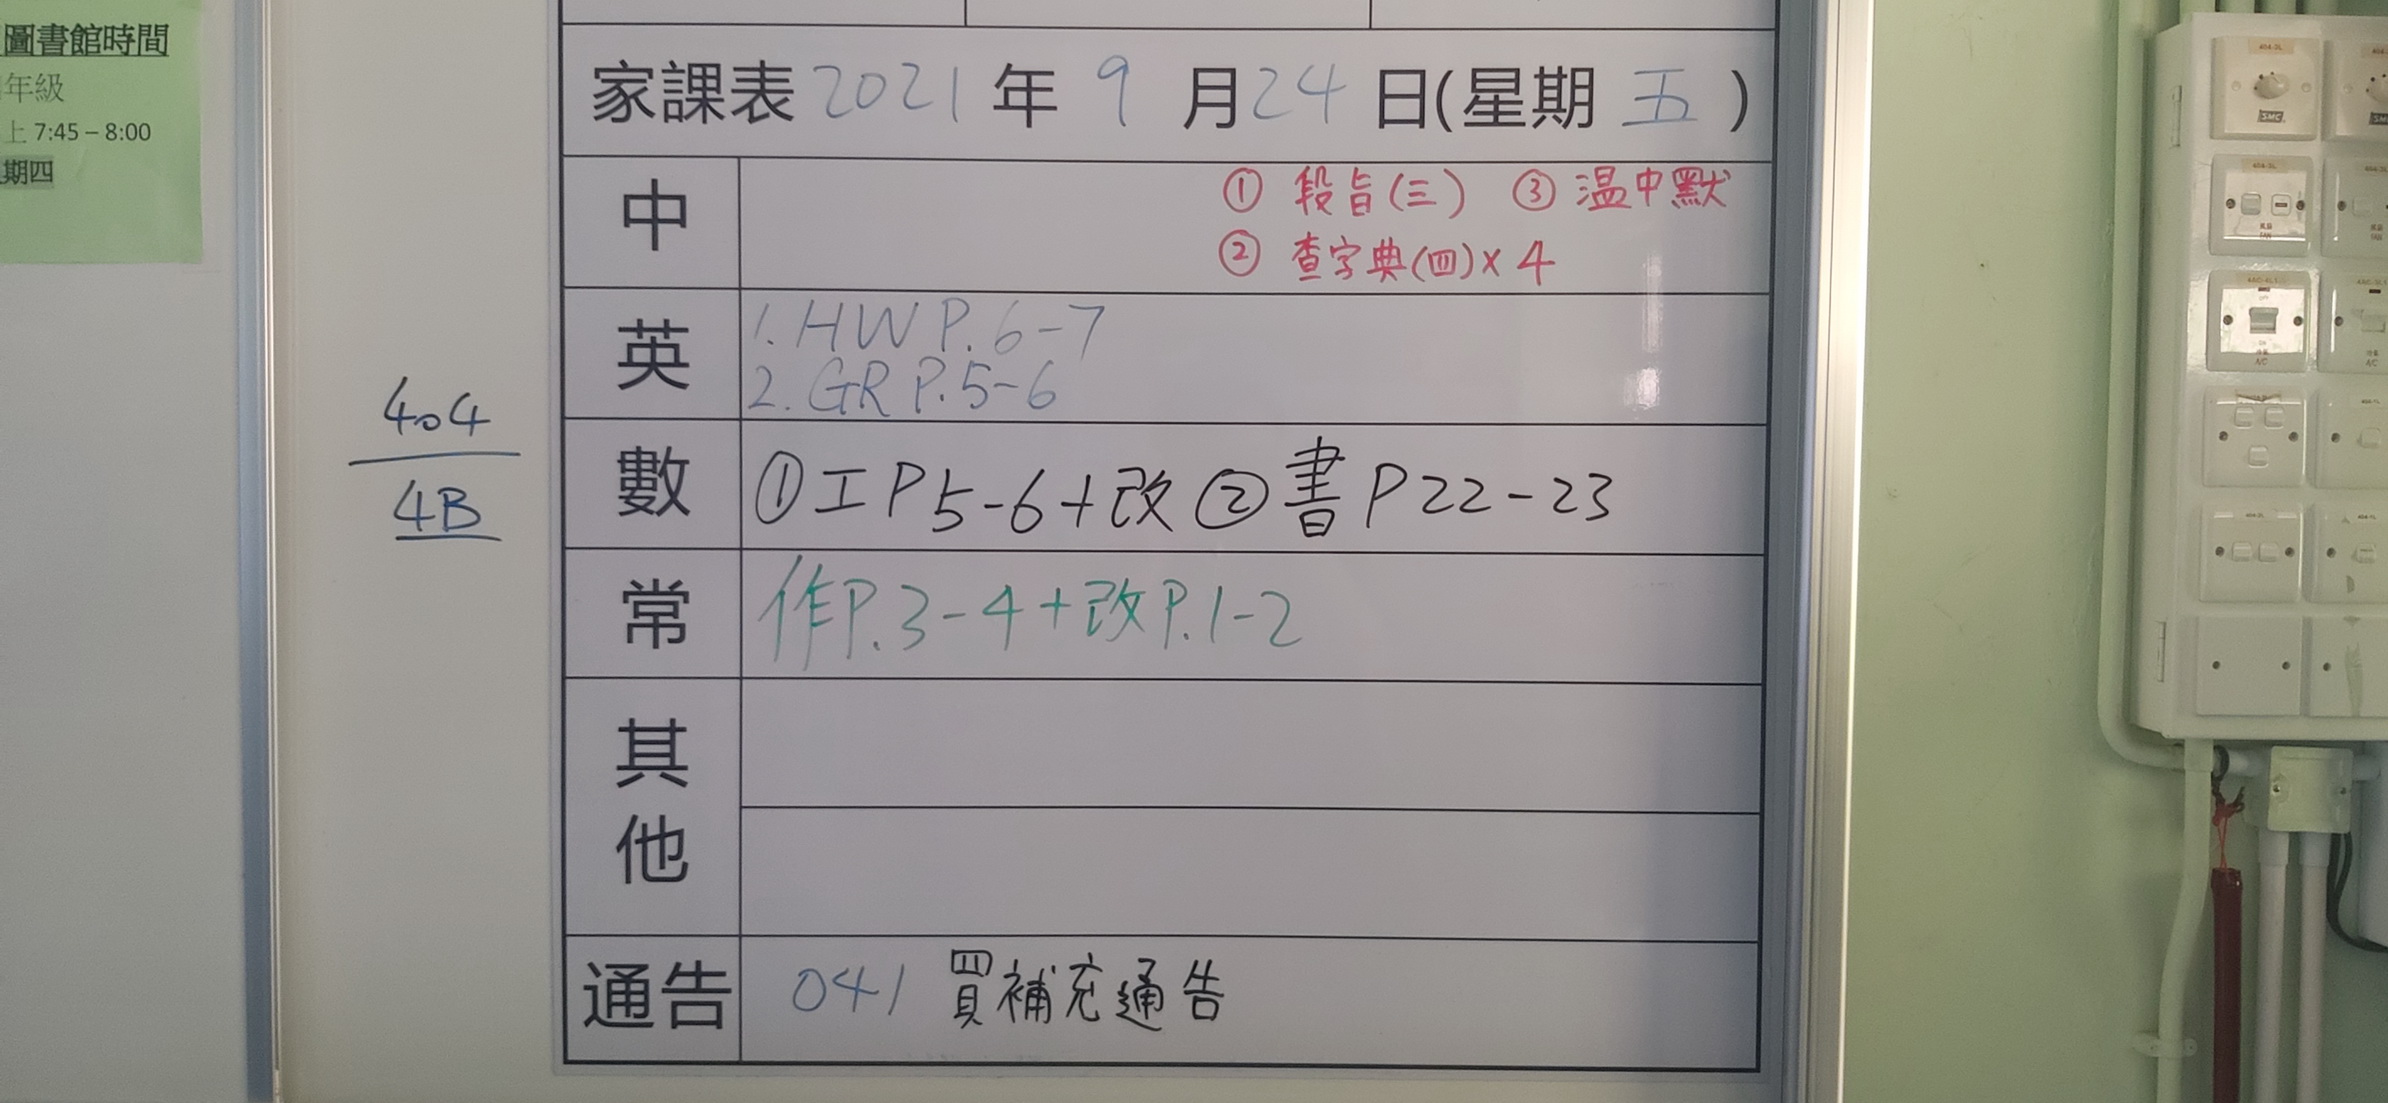 圖書館時間
年級
上 7:45 – 8:00
期四
家課表 2021 年 9 月 24 日(星期 五 )
中
① 段旨(三) ③ 温中默
② 查字典(四)x 4
英
1. HW P. 6-7
2. GR P. 5-6
404
4B
數
① 工 P 5-6 + 改 ② 書 P 22-23
常
作P. 3-4 + 改P. 1-2
其他
通告
041 買補充通告
SMC